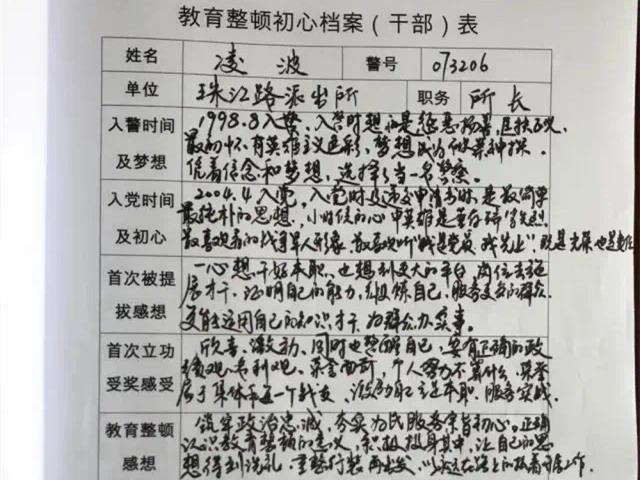 教育整顿初心档案（干部）表
姓名 凌波 警号 073206
单位 珠江路派出所 职务 所长
入警时间
及梦想
1998.8入警、入警时想的是惩恶扬善、匡扶正义、
最初怀有英雄主义色彩，梦想成为破案神探、
凭着信念和梦想，选择了当一名警察。
入党时间
及初心
2004.4入党，入党时递交申请书时、是最简单
最纯朴的思想、小时候的心中英雄是董存瑞等先烈
最喜观看的战争军人形象、最喜欢听"我是党员 我先上"既是光荣也是责任
首次被提
拔感想
一心想干好本职、也想到更大的平台，岗位去施
展才干、证明自己的能力、锻炼自己、服务更多的群众
更能运用自己的知识才干、为群众办实事。
首次立功
受奖感受
欣喜、激动、同时也警醒自己，要有正确的政
绩观、名利观、荣誉面前，个人努力不算什么、荣誉
属于集体和每一个战友、激励自己立足本职、服务实战
教育整顿
感想
筑牢政治忠诚，夯实为民服务宗旨初心。正确
认识教育整顿的意义、积极投身其中，让自己的思
想得到洗礼、重整行装再出发，以永远在路上的执着